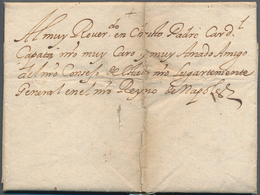 Al muy Rever.do en Cristo Padre Card.l
Çapata nro muy Caro y muy Amado Amigo
del nro Consejo de Estado nro Lugarteniente
General en el nro Reyno de Napoles